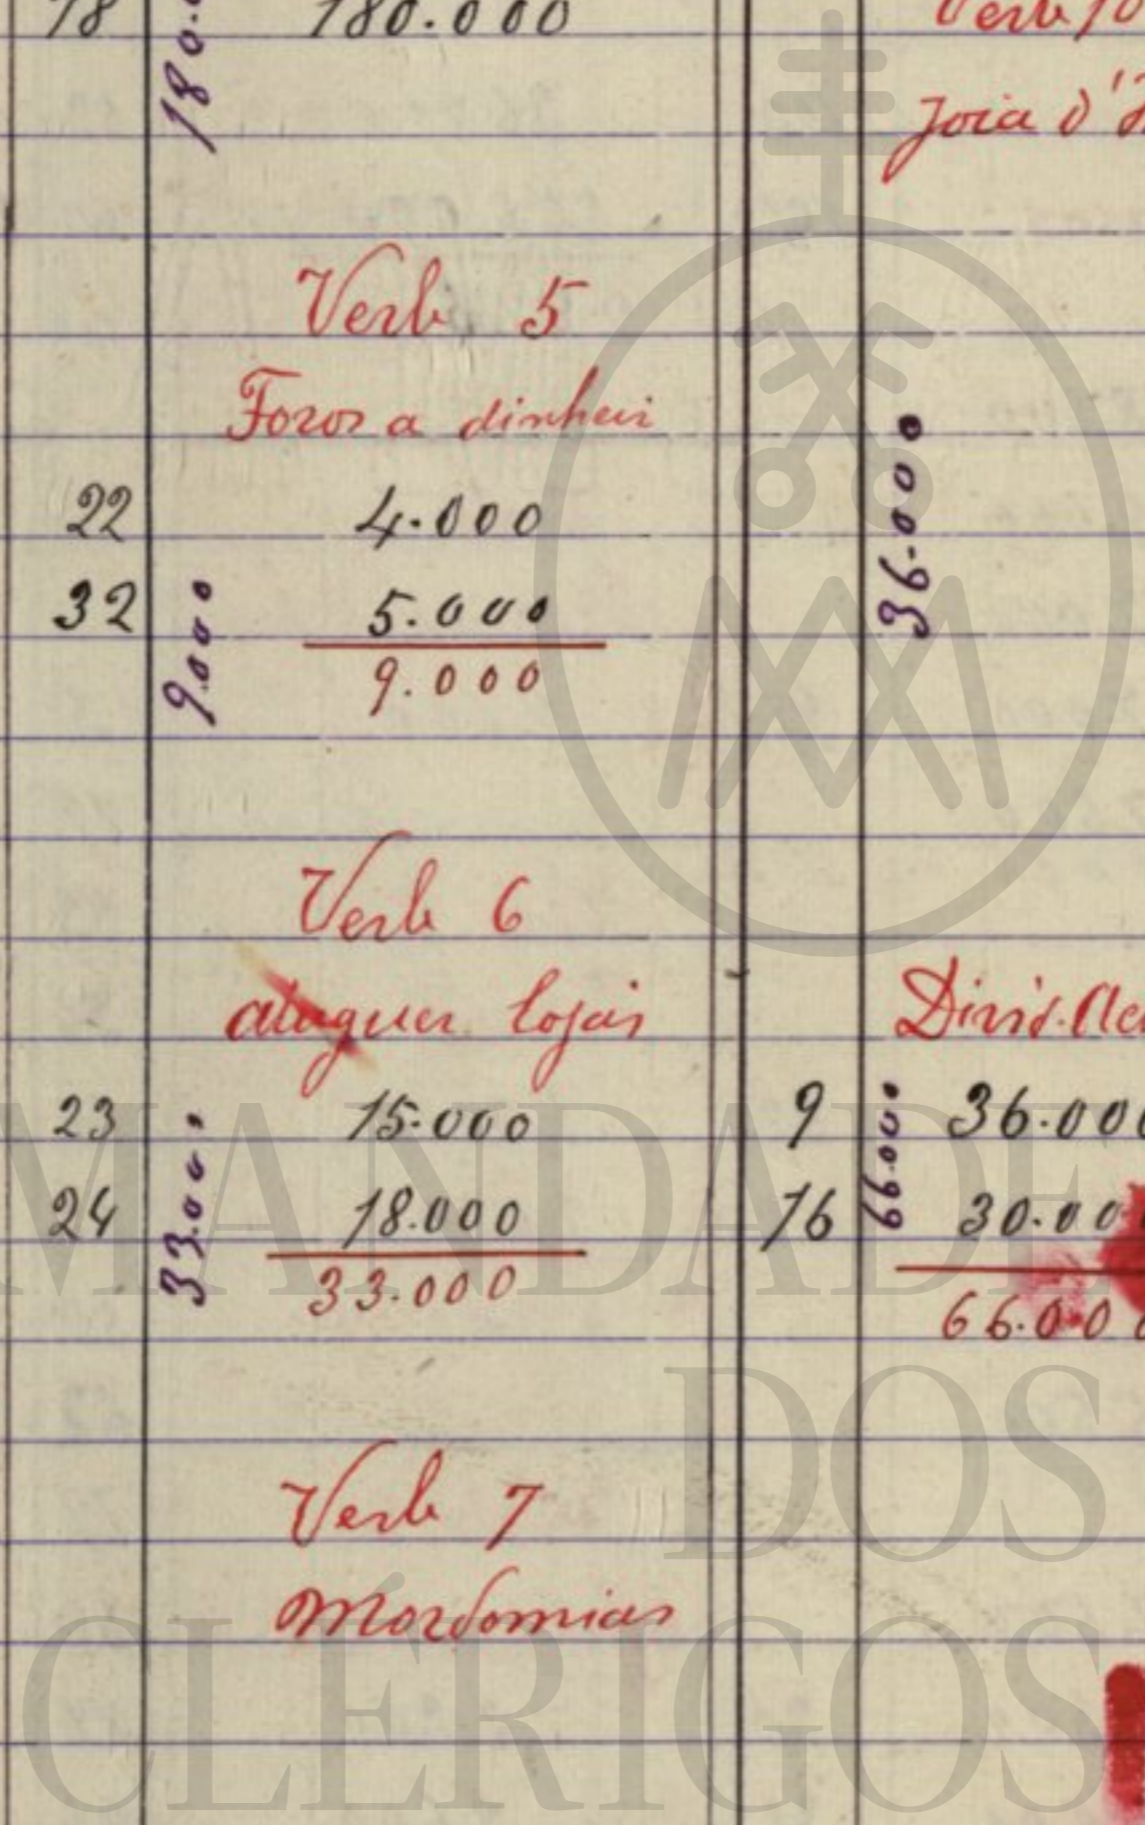 18 180.000
180.
Verb 5
Foros a dinhei
22 4.000
32 5.000
9.000
9.000
Verb 6
aluguer lojas
23 15.000
24 18.000
33.000
33.000
Verb 7
Mordomias
Verb 10
Joia d'
36.000
Divid. Ac
9 36.000
16 30.00
66.000
66.00
MANDADE
DOS
CLÉRIGOS